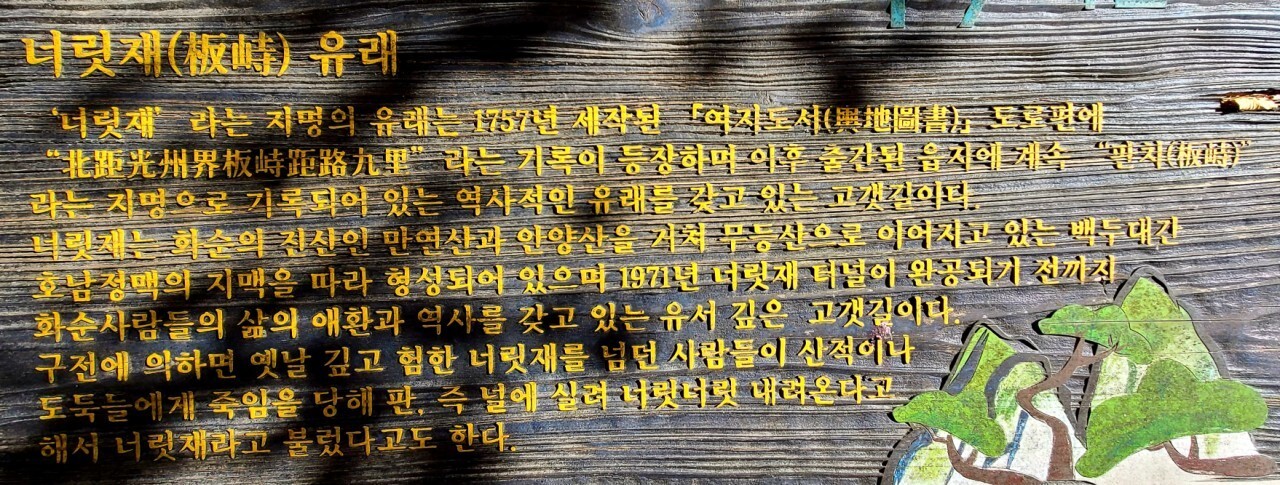 너릿재(板峙) 유래
‘너릿재’ 라는 지명의 유래는 1757년 세작된 「여지도서(輿地圖書)」 도로편에
“北距光州界板峙距路九里” 라는 기록이 등장하며 이후 출간된 읍지에 계속 “판치(板峙)”
라는 지명으로 기록되어 있는 역사적인 유래를 갖고 있는 고갯길이다.
너릿재는 화순의 진산인 만연산과 안양산을 거쳐 무등산으로 이어지고 있는 백두대간
호남정맥의 지맥을 따라 형성되어 있으며 1971년 너릿재 터널이 완공되기 전까지
화순사람들의 삶의 애환과 역사를 갖고 있는 유서 깊은 고갯길이다.
구전에 의하면 옛날 깊고 험한 너릿재를 넘던 사람들이 산적이나
도둑들에게 죽임을 당해 판, 즉 널에 실려 너릿너릿 내려온다고
해서 너릿재라고 불렀다고도 한다.